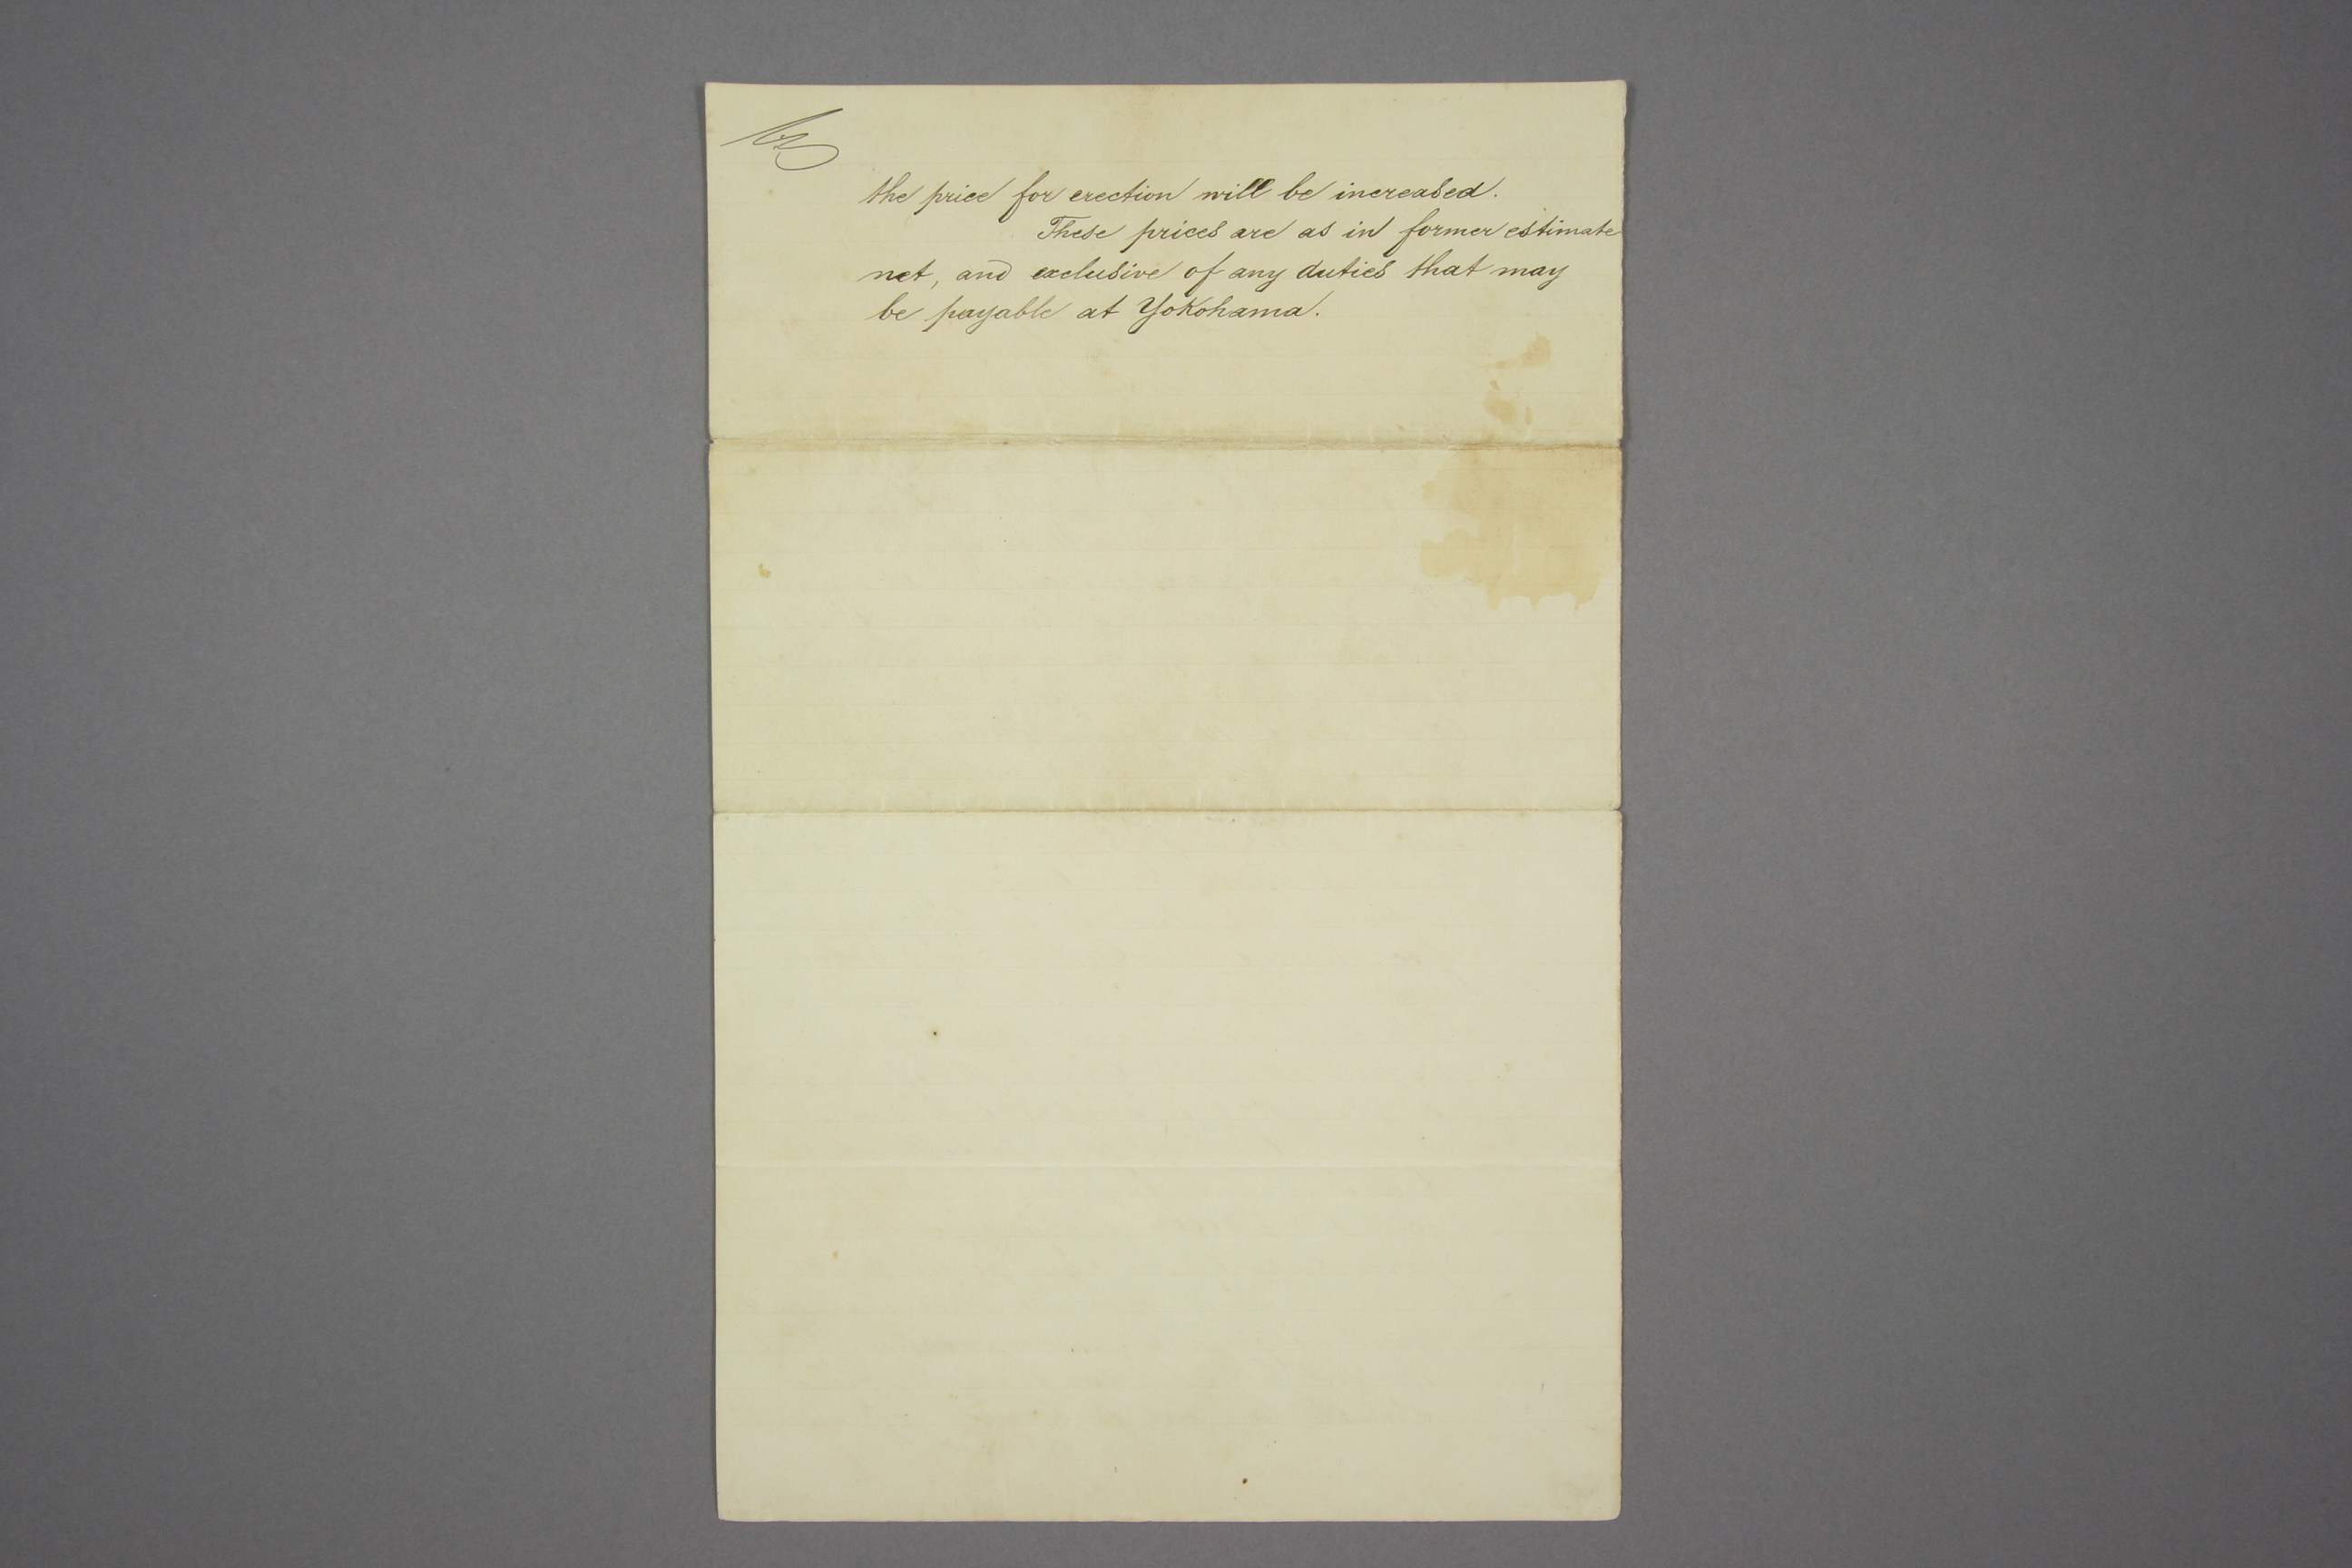 the price for erection will be increased.
These prices are as in former estimate
net, and exclusive of any duties that may
be payable at Yokohama.